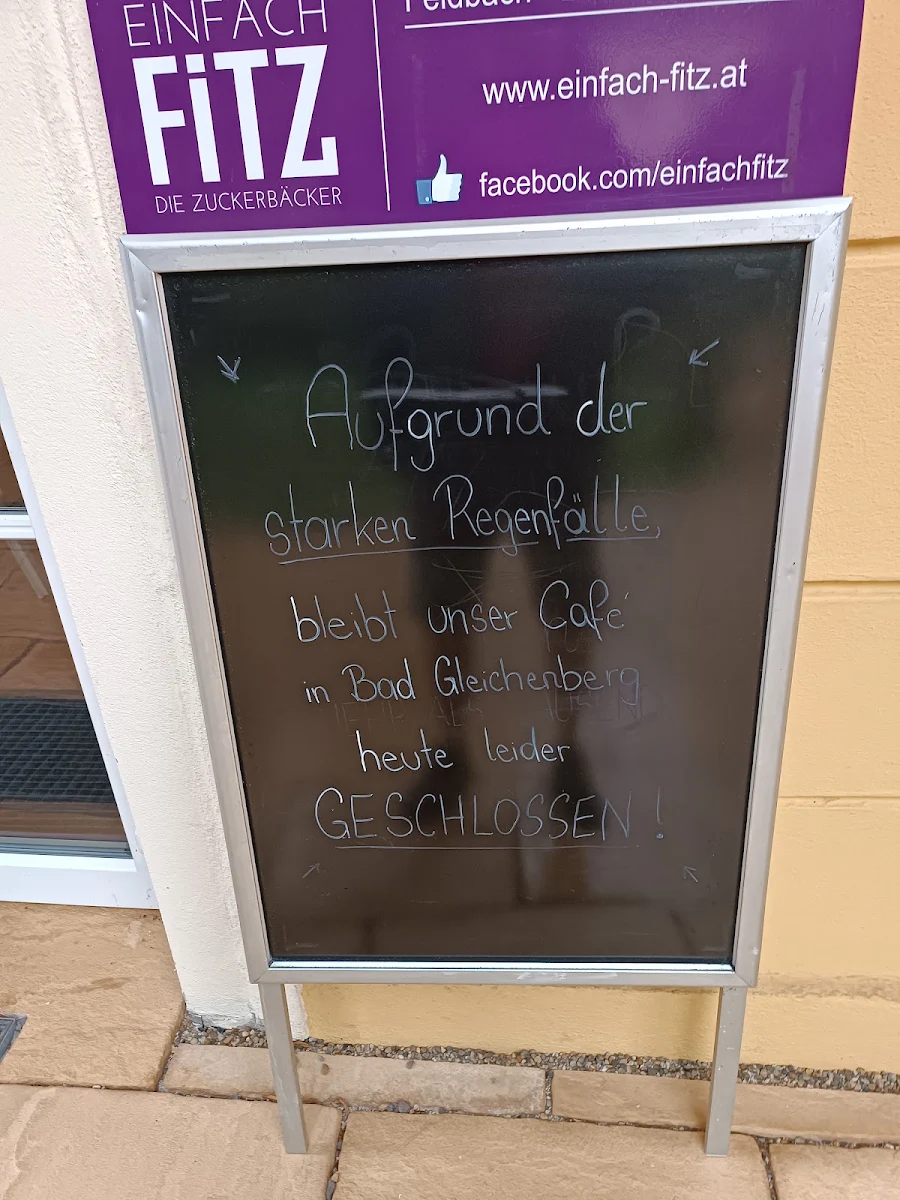 EINFACH
FiTZ
DIE ZUCKERBÄCKER
Feldbach
www.einfach-fitz.at
facebook.com/einfachfitz
Aufgrund der
starken Regenfälle,
bleibt unser Café
in Bad Gleichenberg
heute leider
GESCHLOSSEN!